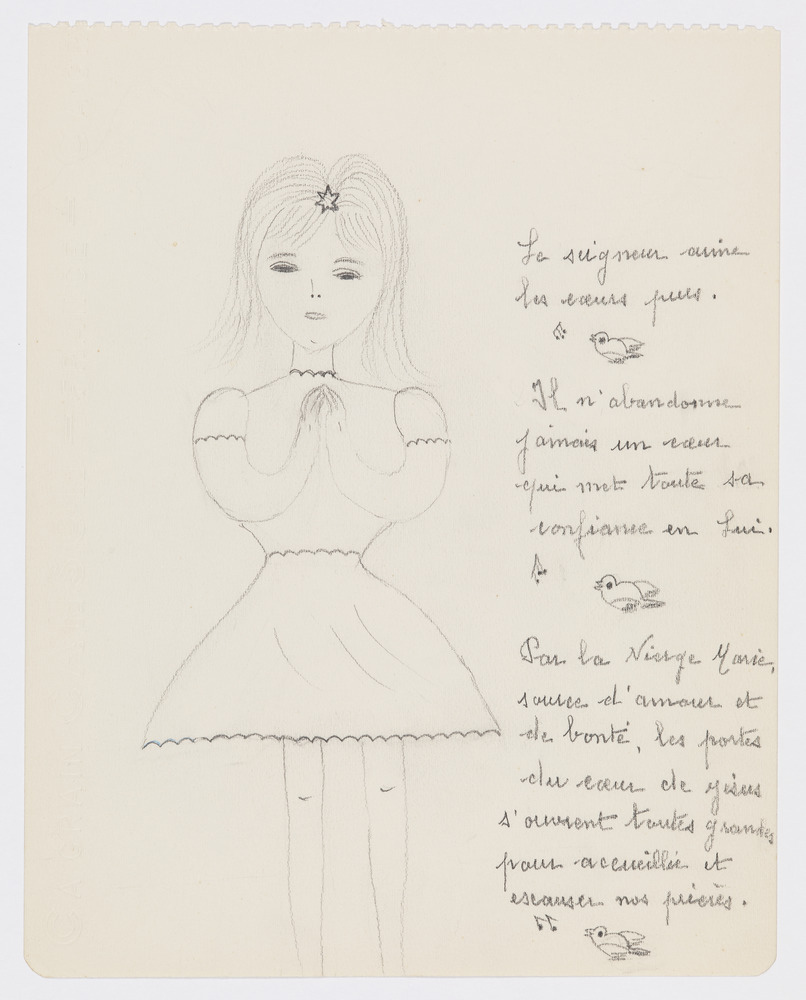 Le seigneur aime
les cœurs purs.
Il n'abandonne
jamais un cœur
qui met toute sa
confiance en Lui.
Par la Vierge Marie,
source d'amour et
de bonté, les portes
du cœur de jésus
s'ouvrent toutes grandes
pour accueillie et
escauser nos prières.